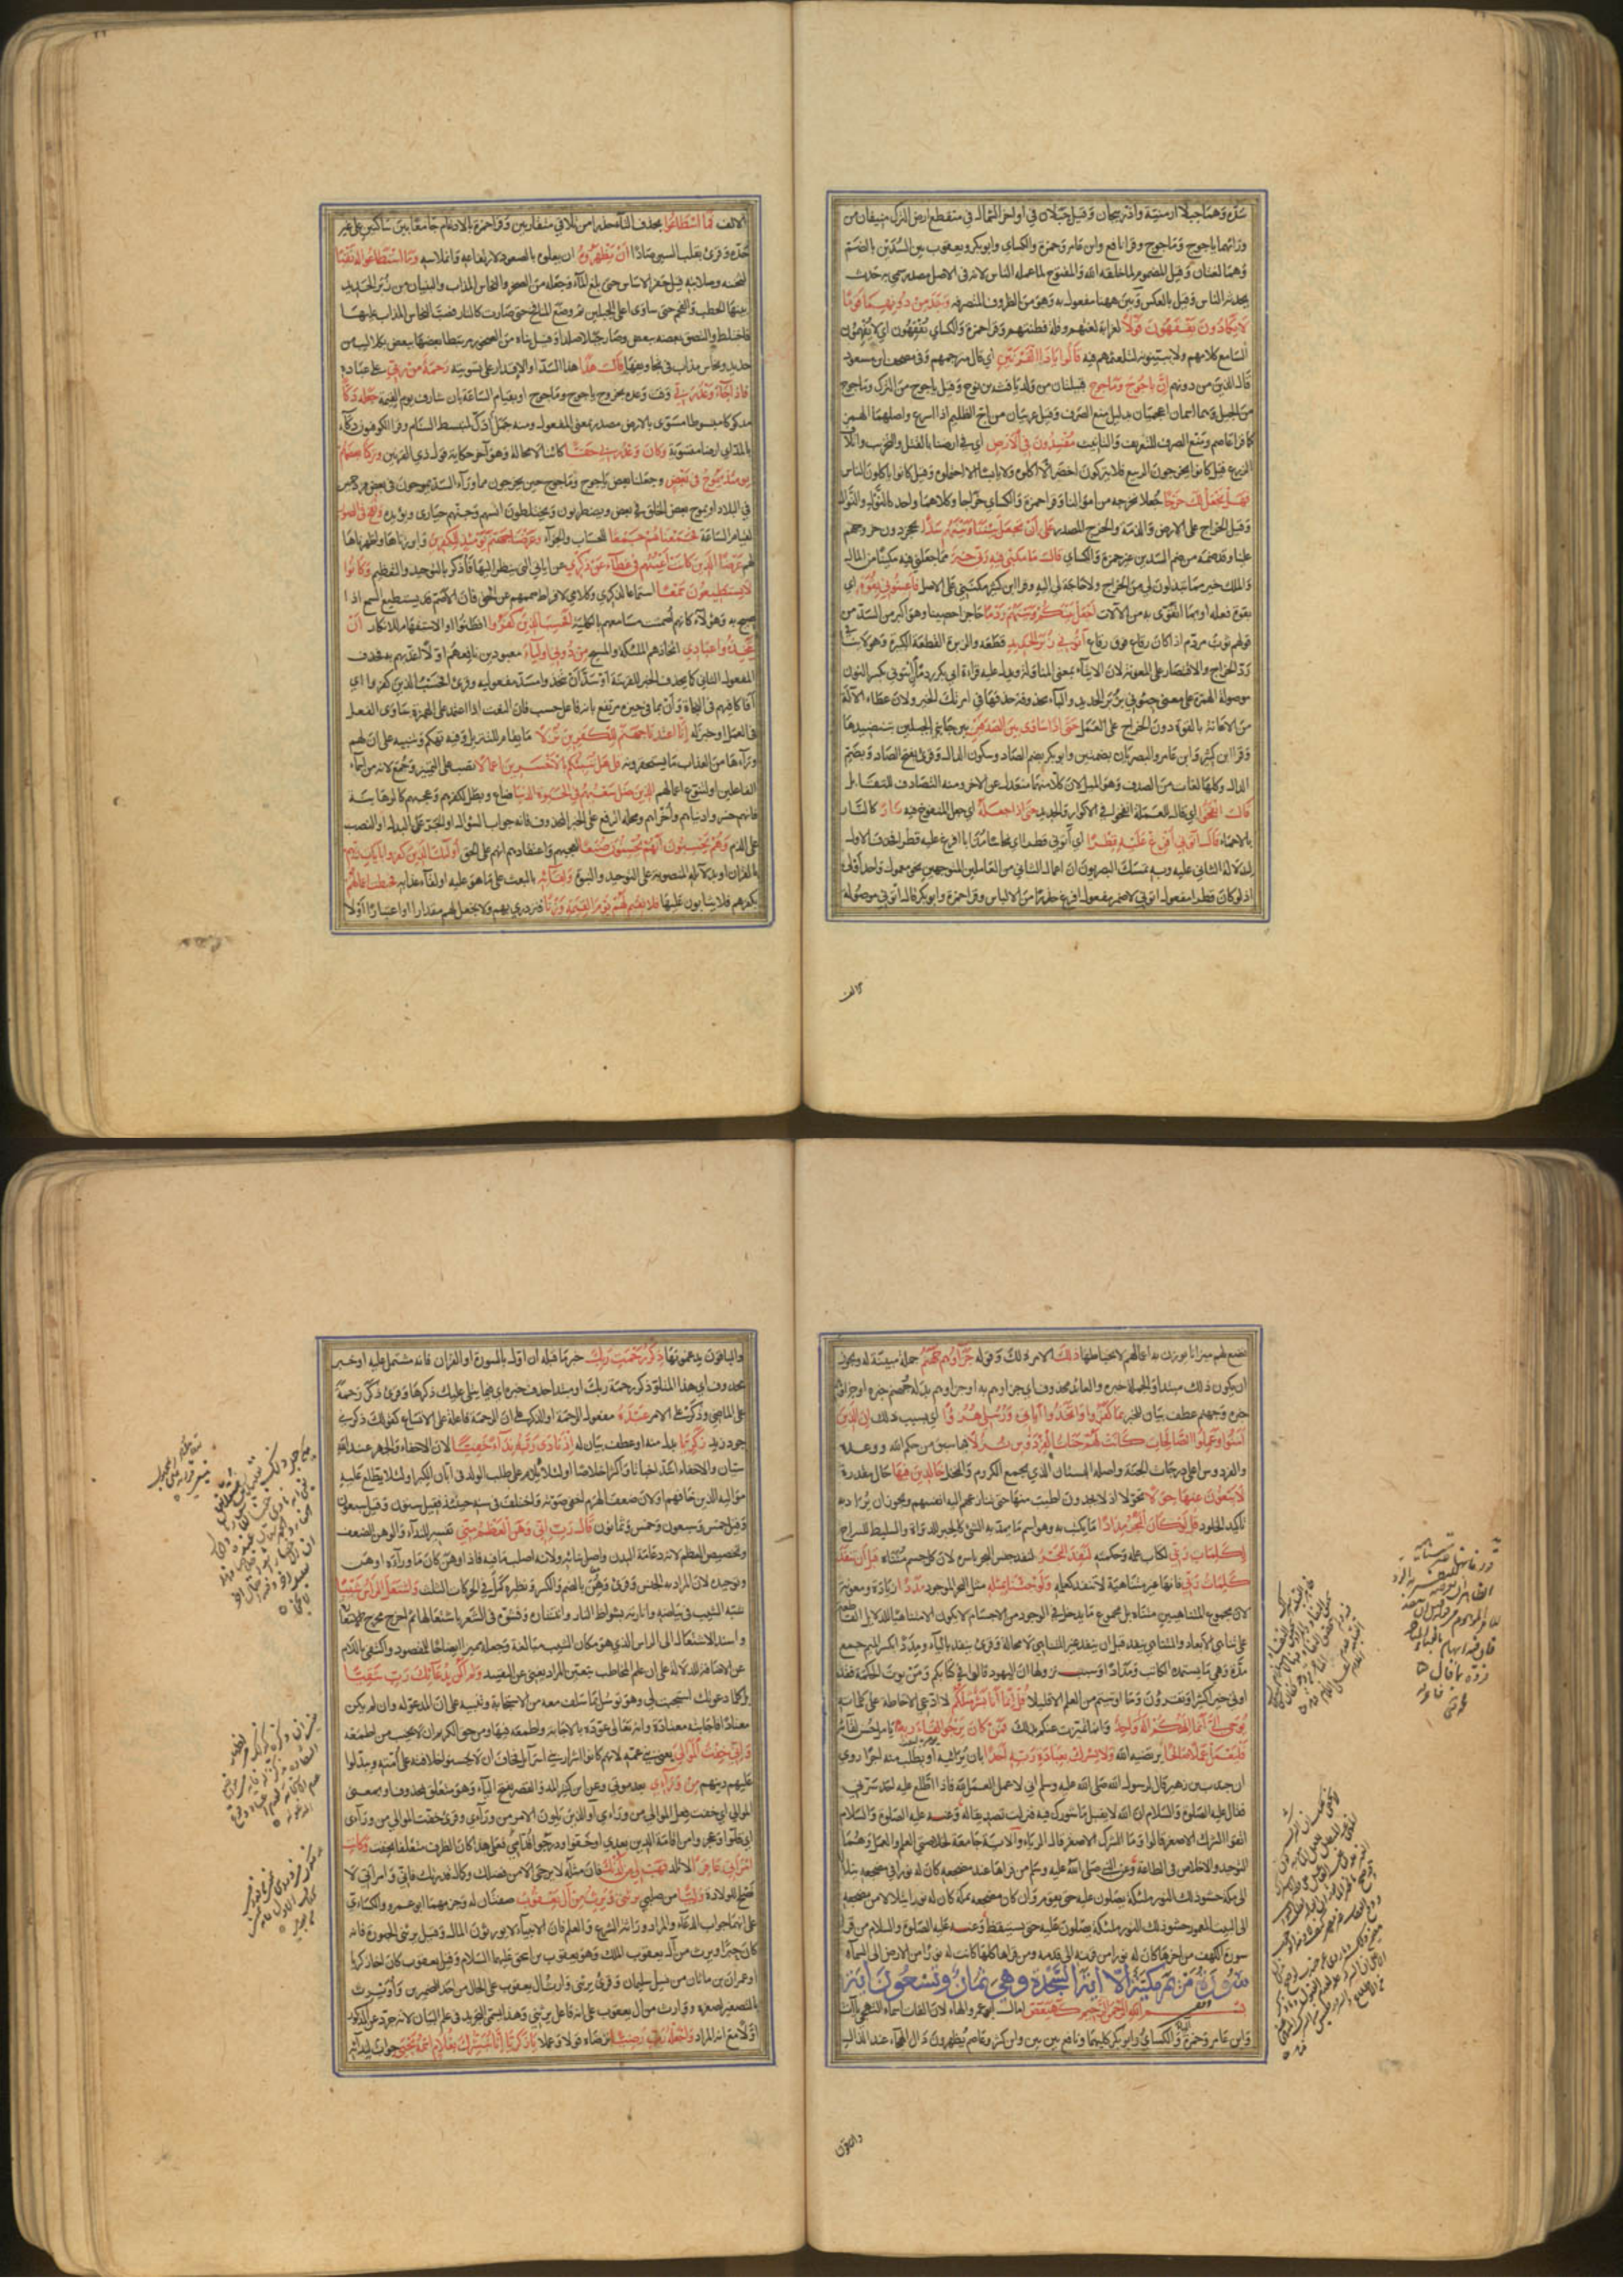 سدّه وهما جبلا ارمنية واذربيجان وقيل جبلان في اواخر الشمال في منقطع ارض الترك منيفان من
ورائهما ياجوج وماجوج وقرا نافع وابن عامر وحمزة والكسائي وابو بكر ويعقوب بين السُّدّين بالضم
وهما لغتان وقيل المضموم لما خلقه الله والمفتوح لما عمله الناس لانه في الاصل مصدر سمي به حدث
يحدثه الناس وقيل بالعكس وبين ههنا مفعول به وهو من الظروف المتصرفة وَجَدَ مِنْ دُونِهِمَا قَوْمًا
لَا يَكَادُونَ يَفْقَهُونَ قَوْلًا لغرابة لغتهم وقلة فطنتهم وقرا حمزة والكسائي يُفْقِهُون اي لا يُفهِمُون
السامع كلامهم ولا يبينونه لتلعثمهم فيه قَالُوا يَاذَا الْقَرْنَيْنِ اي قال مترجمهم وفي مصحف ابن مسعود
قال الذين من دونهم إِنَّ يَاجُوجَ وَمَاجُوجَ قبيلتان من ولد يافث بن نوح وقيل ياجوج من الترك وماجوج
من الجبل وهما اسمان اعجميان بدليل منع الصرف وقيل عربيان من اج الظليم اذا اسرع واصلهما الهمز
كما قرا عاصم ومنع الصرف للتعريف والتانيث مُفْسِدُونَ فِي الْأَرْضِ اي في ارضنا بالقتل والتخريب واتلاف
الزرع قيل كانوا يخرجون الربيع فلا يتركون اخضر الا اكلوه ولا يابسا الا احتملوه وقيل كانوا ياكلون الناس
فَهَلْ نَجْعَلُ لَكَ خَرْجًا جُعلا نخرجه من اموالنا وقرا حمزة والكسائي خراجا وكلاهما واحد كالنول والنوال
وقيل الخراج على الارض والذمة والخرج المصدر عَلَى أَنْ تَجْعَلَ بَيْنَنَا وَبَيْنَهُمْ سَدًّا يحجز دون خروجهم
علينا وقد ضمه من ضم السدين غير حمزة والكسائي قَالَ مَا مَكَّنِّي فِيهِ رَبِّي خَيْرٌ ما جعلني فيه مكينا من المال
والملك خير مما تبذلون لي من الخراج ولا حاجة لي اليه وقرا ابن كثير مكنني على الاصل فَأَعِينُونِي بِقُوَّةٍ اي
بقوة فعلة او بما اتقوى به من الآلات أَجْعَلْ بَيْنَكُمْ وَبَيْنَهُمْ رَدْمًا حاجزا حصينا وهو اكبر من السد من
قولهم ثوب مردم اذا كان رقاع فوق رقاع آتُونِي زُبَرَ الْحَدِيدِ قطعه والزبرة القطعة الكبيرة وهو لا ينافي
رد الخراج والاقتصار على المعونة لان الايتاء بمعنى المناولة ويدل عليه قراءة ابي بكر ردما ائتوني بكسر التنوين
موصولة الهمزة على معنى جيئوني بزبر الحديد والباء محذوفة حذفها في امرتك الخير ولان عطاء الآلة
من الاعانة بالقوة دون الخراج على العمل حَتَّى إِذَا سَاوَى بَيْنَ الصَّدَفَيْنِ بين جانبي الجبلين بتنضيدها
وقرا ابن كثير وابن عامر والبصريان بضمتين وابو بكر بضم الصاد وسكون الدال وقرئ بفتح الصاد وبضم
الدال وكلها لغات من الصدف وهو الميل لان كلا منهما منعزل عن الآخر ومنه التصادف للتقابل
قَالَ انْفُخُوا اي قال للعملة انفخوا في الاكوار والحديد حَتَّى إِذَا جَعَلَهُ اي جعل المنفوخ فيه نَارًا كالنار
بالاحماء قَالَ آتُونِي أُفْرِغْ عَلَيْهِ قِطْرًا اي آتوني قطرا اي نحاسا مذابا افرغ عليه قطرا فحذف الاول
لدلالة الثاني عليه وبه تمسك البصريون ان اعمال الثاني من العاملين المتوجهين نحو معمول واحد اولى
اذ لو كان قطرا مفعول آتوني لاضمر مفعول افرغ حذرا من الالباس وقرا حمزة وابو بكر قال اتوني موصولة
الالف
الالف فَمَا اسْطَاعُوا بحذف التاء حذرا من تلاقي متقاربين وقرا حمزة بالادغام جامعا بين ساكنين على غير
حدّه وقرئ بقلب السين صادا أَنْ يَظْهَرُوهُ ان يعلوه بالصعود لارتفاعه وانملاسه وَمَا اسْتَطَاعُوا لَهُ نَقْبًا
لثخنه وصلابته قيل حفر الاساس حتى بلغ الماء وجعله من الصخر والنحاس المذاب والبنيان من زبر الحديد
بينها الحطب والفحم حتى ساوى اعلى الجبلين ثم وضع المنافيخ حتى صارت كالنار فصب النحاس المذاب عليها
فاختلط والتصق بعضه ببعض وصار جبلا صلدا وقيل بناه من الصخور مرتبطا بعضها ببعض بكلاليب من
حديد ونحاس مذاب في تجاويفها قَالَ هَذَا هذا السد او الاقدار على تسويته رَحْمَةٌ مِنْ رَبِّي على عباده
فَإِذَا جَاءَ وَعْدُ رَبِّي وقت وعده بخروج ياجوج وماجوج او بقيام الساعة بان شارف يوم القيمة جَعَلَهُ دَكًّا
مدكوكا مبسوطا مسوى بالارض مصدر بمعنى المفعول ومنه جمل ادكّ لمنبسط السنام وقرا الكوفيون دكاء
بالمد اي ارضا مستوية وَكَانَ وَعْدُ رَبِّي حَقًّا كائنا لا محالة وهو آخر حكاية قول ذي القرنين وَتَرَكْنَا بَعْضَهُمْ
يَوْمَئِذٍ يَمُوجُ فِي بَعْضٍ وجعلنا بعض ياجوج وماجوج حين يخرجون مما وراء السد يموجون في بعض مزدحمين
في البلاد او يموج بعض الخلق في بعض ويضطربون ويختلطون انسهم وجنهم حيارى ويؤيده وَنُفِخَ فِي الصُّورِ
لقيام الساعة فَجَمَعْنَاهُمْ جَمْعًا للحساب والجزاء وَعَرَضْنَا جَهَنَّمَ يَوْمَئِذٍ لِلْكَافِرِينَ وابرزناها واظهرناها
لهم عَرْضًا الَّذِينَ كَانَتْ أَعْيُنُهُمْ فِي غِطَاءٍ عَنْ ذِكْرِي عن اياتي التي ينظر اليها فاذكر بالتوحيد والتعظيم وَكَانُوا
لَا يَسْتَطِيعُونَ سَمْعًا استماعا لذكري وكلامي لافراط صممهم عن الحق فان الاصم قد يستطيع السمع اذا
صيح به وهؤلاء كانهم اصمت مسامعهم بالكلية أَفَحَسِبَ الَّذِينَ كَفَرُوا افظنوا والاستفهام للانكار أَنْ
يَتَّخِذُوا عِبَادِي اتخاذهم الملئكة والمسيح مِنْ دُونِي أَوْلِيَاءَ معبودين نافعهم او لا اعذبهم به فحذف
المفعول الثاني كما يحذف الخبر للقرينة او سد ان يتخذوا مسد مفعوليه وقرئ افحسب الذين كفروا اي
افكافيهم في النجاة وان بما في حيزه مرتفع بانه فاعل حسب فان النعت اذا اعتمد على الهمزة ساوى الفعل
في العمل او خبر له إِنَّا أَعْتَدْنَا جَهَنَّمَ لِلْكَافِرِينَ نُزُلًا ما يقام للنزيل وفيه تهكم وتنبيه على ان لهم
وراءها من العذاب ما يستحقر دونه قُلْ هَلْ نُنَبِّئُكُمْ بِالْأَخْسَرِينَ أَعْمَالًا نصب على التمييز وجمع لانه من اسماء
الفاعلين او لتنوع اعمالهم الَّذِينَ ضَلَّ سَعْيُهُمْ فِي الْحَيَوةِ الدُّنْيَا ضاع وبطل لكفرهم وعجبهم كالرهابنة
فانهم خسروا دنياهم واخراهم ومحله الرفع على الخبر المحذوف فانه جواب السؤال او الجر على البدل او النصب
على الذم وَهُمْ يَحْسَبُونَ أَنَّهُمْ يُحْسِنُونَ صُنْعًا لعجبهم واعتقادهم انهم على الحق أُولَئِكَ الَّذِينَ كَفَرُوا بِآيَاتِ رَبِّهِمْ
بالقران او بدلائله المنصوبة على التوحيد والنبوة وَلِقَائِهِ بالبعث على ما هو عليه او لقاء عذابه فَحَبِطَتْ أَعْمَالُهُمْ
بكفرهم فلا يثابون عليها فَلَا نُقِيمُ لَهُمْ يَوْمَ الْقِيمَةِ وَزْنًا فنزدري بهم ولا نجعل لهم مقدارا او اعتبارا اولا
نضع لهم ميزانا يوزن به اعمالهم لانحباطها ذَلِكَ الامر ذلك وقوله جَزَاؤُهُمْ جَهَنَّمُ جملة مبينة له ويجوز
ان يكون ذلك مبتدا والجملة خبره والعائد محذوف اي جزاؤهم به او جزاؤهم بدله وجهنم خبره او جزاؤهم
خبره وجهنم عطف بيان للخبر بِمَا كَفَرُوا وَاتَّخَذُوا آيَاتِي وَرُسُلِي هُزُوًا اي بسبب ذلك إِنَّ الَّذِينَ
آمَنُوا وَعَمِلُوا الصَّالِحَاتِ كَانَتْ لَهُمْ جَنَّاتُ الْفِرْدَوْسِ نُزُلًا فيما سبق من حكم الله ووعده
والفردوس اعلى درجات الجنة واصله البستان الذي يجمع الكروم والنخل خَالِدِينَ فِيهَا حال مقدرة
لَا يَبْغُونَ عَنْهَا حِوَلًا تحولا اذ لا يجدون اطيب منها حتى تنازعهم اليه انفسهم ويجوز ان يراد به
تاكيد الخلود قُلْ لَوْ كَانَ الْبَحْرُ مِدَادًا ما يكتب به وهو اسم ما يمد به الشئ كالحبر للدواة والسليط للسراج
لِكَلِمَاتِ رَبِّي لكلمات علمه وحكمته لَنَفِدَ الْبَحْرُ لنفد جنس البحر باسره لان كل جسم متناه قَبْلَ أَنْ تَنْفَدَ
كَلِمَاتُ رَبِّي فانها غير متناهية لا تنفد كعلمه وَلَوْ جِئْنَا بِمِثْلِهِ مثل البحر الموجود مَدَدًا زيادة ومعونة
لان مجموع المتناهيين متناه بل مجموع ما يدخل في الوجود من الاجسام لا يكون الا متناهيا للدلايل القاطعة
على تناهي الابعاد والمتناهي ينفد قبل ان ينفد غير المتناهي لا محالة وقرئ ينفد بالياء ومِددا بكسر الميم جمع
مدة وهي ما يستمده الكاتب ومدادا وسبب نزولها ان اليهود قالوا في كتابكم ومن يؤت الحكمة فقد
اوتي خيرا كثيرا وتقرؤون وما اوتيتم من العلم الا قليلا قُلْ إِنَّمَا أَنَا بَشَرٌ مِثْلُكُمْ لا ادعي الاحاطة على كلماته
يُوحَى إِلَيَّ أَنَّمَا إِلَهُكُمْ إِلَهٌ وَاحِدٌ وانما تميزت عنكم بذلك فَمَنْ كَانَ يَرْجُوا لِقَاءَ رَبِّهِ يامل حسن لقائه
فَلْيَعْمَلْ عَمَلًا صَالِحًا يرتضيه الله وَلَا يُشْرِكْ بِعِبَادَةِ رَبِّهِ أَحَدًا بان يرائيه او يطلب منه اجرا روي
ان جندب بن زهير قال لرسول الله صلى الله عليه وسلم اني لاعمل العمل لله فاذا اطلع عليه احد سرني
فقال عليه الصلوة والسلام ان الله لا يقبل ما شورك فيه فنزلت تصديقا له وعنه عليه الصلوة والسلام
اتقوا الشرك الاصغر قالوا وما الشرك الاصغر قال الرياء والآية جامعة لخلاصتي العلم والعمل وهما
التوحيد والاخلاص في الطاعة وعن النبي صلى الله عليه وسلم من قراها عند مضجعه كان له نورا في مضجعه يتلألأ
الى مكة حشو ذلك النور ملئكة يصلون عليه حتى يقوم وان كان مضجعه بمكة كان له نورا يتلألأ من مضجعه
الى البيت المعمور حشو ذلك النور ملئكة يصلون عليه حتى يستيقظ وعنه عليه الصلوة والسلام من قرا
سورة الكهف من اخرها كان له نورا من قرنه الى قدمه ومن قراها كلها كانت له نورا من الارض الى السماء
سُورَةُ مَرْيَمَ مَكِّيَّةٌ إِلَّا آيَةَ السَّجْدَةِ وَهِيَ ثَمَانٌ وَتِسْعُونَ آيَةً
بِسْمِ اللهِ الرَّحْمَنِ الرَّحِيمِ كهيعص امال ابو عمرو الهاء لان الفات اسماء التهجي ياآت
وابن عامر وحمزة الياء والكسائي وابو بكر كليهما ونافع بين بين وابن كثير وعاصم يظهرون دال الهجاء عند الذال
والباقون
والباقون يدغمونها ذِكْرُ رَحْمَتِ رَبِّكَ خبر ما قبله ان اول بالسورة او القران فانه مشتمل عليه او خبر
محذوف اي هذا المتلو ذكر رحمة ربك او مبتدا حذف خبره اي فيما يتلى عليك ذكرها وقرئ ذكر رحمة
على الماضي وذكر على الامر عَبْدَهُ مفعول الرحمة او الذكر على ان الرحمة فاعله على الاتساع كقولك ذكرني
جود زيد زَكَرِيَّا بدل منه او عطف بيان له إِذْ نَادَى رَبَّهُ نِدَاءً خَفِيًّا لان الاخفاء والجهر عند الله
سيان والاخفاء اشد اخباتا واكثر اخلاصا او لئلا يلام على طلب الولد في ابان الكبر او لئلا يطلع عليه
مواليه الذين خافهم او لان ضعف الهرم اخفى صوته واختلف في سنه حينئذ فقيل ستون وقيل سبعون
وقيل خمس وسبعون وخمس وثمانون قَالَ رَبِّ إِنِّي وَهَنَ الْعَظْمُ مِنِّي تفسير للنداء والوهن الضعف
وتخصيص العظم لانه دعامة البدن واصل بنائه ولانه اصلب ما فيه فاذا وهن كان ما وراءه اوهن
وتوحيده لان المراد به الجنس وقرئ وهُن بالضم والكسر ونظيره كمل في الحركات الثلث وَاشْتَعَلَ الرَّأْسُ شَيْبًا
شبه الشيب في بياضه وانارته بشواظ النار وانتشاره وفشوه في الشعر باشتعالها ثم اخرج مخرج الاستعارة
واسند الاشتعال الى الراس الذي هو مكان الشيب مبالغة وجعله مميزا ايضاحا للمقصود واكتفى باللام
عن الاضافة للدلالة على ان علم المخاطب بتعين المراد يغني عن التقييد وَلَمْ أَكُنْ بِدُعَائِكَ رَبِّ شَقِيًّا
بل كلما دعوتك استجبت لي وهو توسل بما سلف معه من الاستجابة وتنبيه على ان المدعو له وان لم يكن
معتادا فاجابته معتادة وانه تعالى عوده بالاجابة واطمعه فيها ومن حق الكريم ان لا يخيب من اطمعه
وَإِنِّي خِفْتُ الْمَوَالِيَ يعني بني عمه لانهم كانوا اشرار بني اسرائيل فخاف ان لا يحسنوا خلافته على امته ويبدلوا
عليهم دينهم مِنْ وَرَائِي بعد موتي وعن ابن كثير المد والقصر بفتح الياء وهو متعلق بمحذوف او بمعنى
الموالي اي خفت فعل الموالي من ورائي او الذين يلون الامر من ورائي وقرئ خفت الموالي من ورائي
اي قلوا وعجزوا عن اقامة الدين بعدي او خفوا ودرجوا قدامي فعلى هذا كان الظرف متعلقا بخفت وَكَانَتِ
امْرَأَتِي عَاقِرًا لا تلد فَهَبْ لِي مِنْ لَدُنْكَ فان مثله لا يرجى الا من فضلك وكمال قدرتك فاني وامراتي لا
نصلح للولادة وَلِيًّا من صلبي يَرِثُنِي وَيَرِثُ مِنْ آلِ يَعْقُوبَ صفتان له وجزمهما ابو عمرو والكسائي
على انهما جواب الدعاء والمراد وراثة الشرع والعلم فان الانبياء لا يورثون المال وقيل يرثني الحبورة فانه
كان حبرا ويرث من آل يعقوب الملك وهو يعقوب بن اسحق عليهما السلام وقيل يعقوب كان اخا زكريا
او عمران بن ماثان من نسل سليمان وقرئ يرثني وارث آل يعقوب على الحال من احد الضميرين واويرث
بالتصغير لصغره ووارث من آل يعقوب على انه فاعل يرثني وهذا يسمى التجريد في علم البيان لانه جرد عن المذكور
اولا مع انه المراد وَاجْعَلْهُ رَبِّ رَضِيًّا ترضاه قولا وعملا يَا زَكَرِيَّا إِنَّا نُبَشِّرُكَ بِغُلَامٍ اسْمُهُ يَحْيَى جواب لندائه